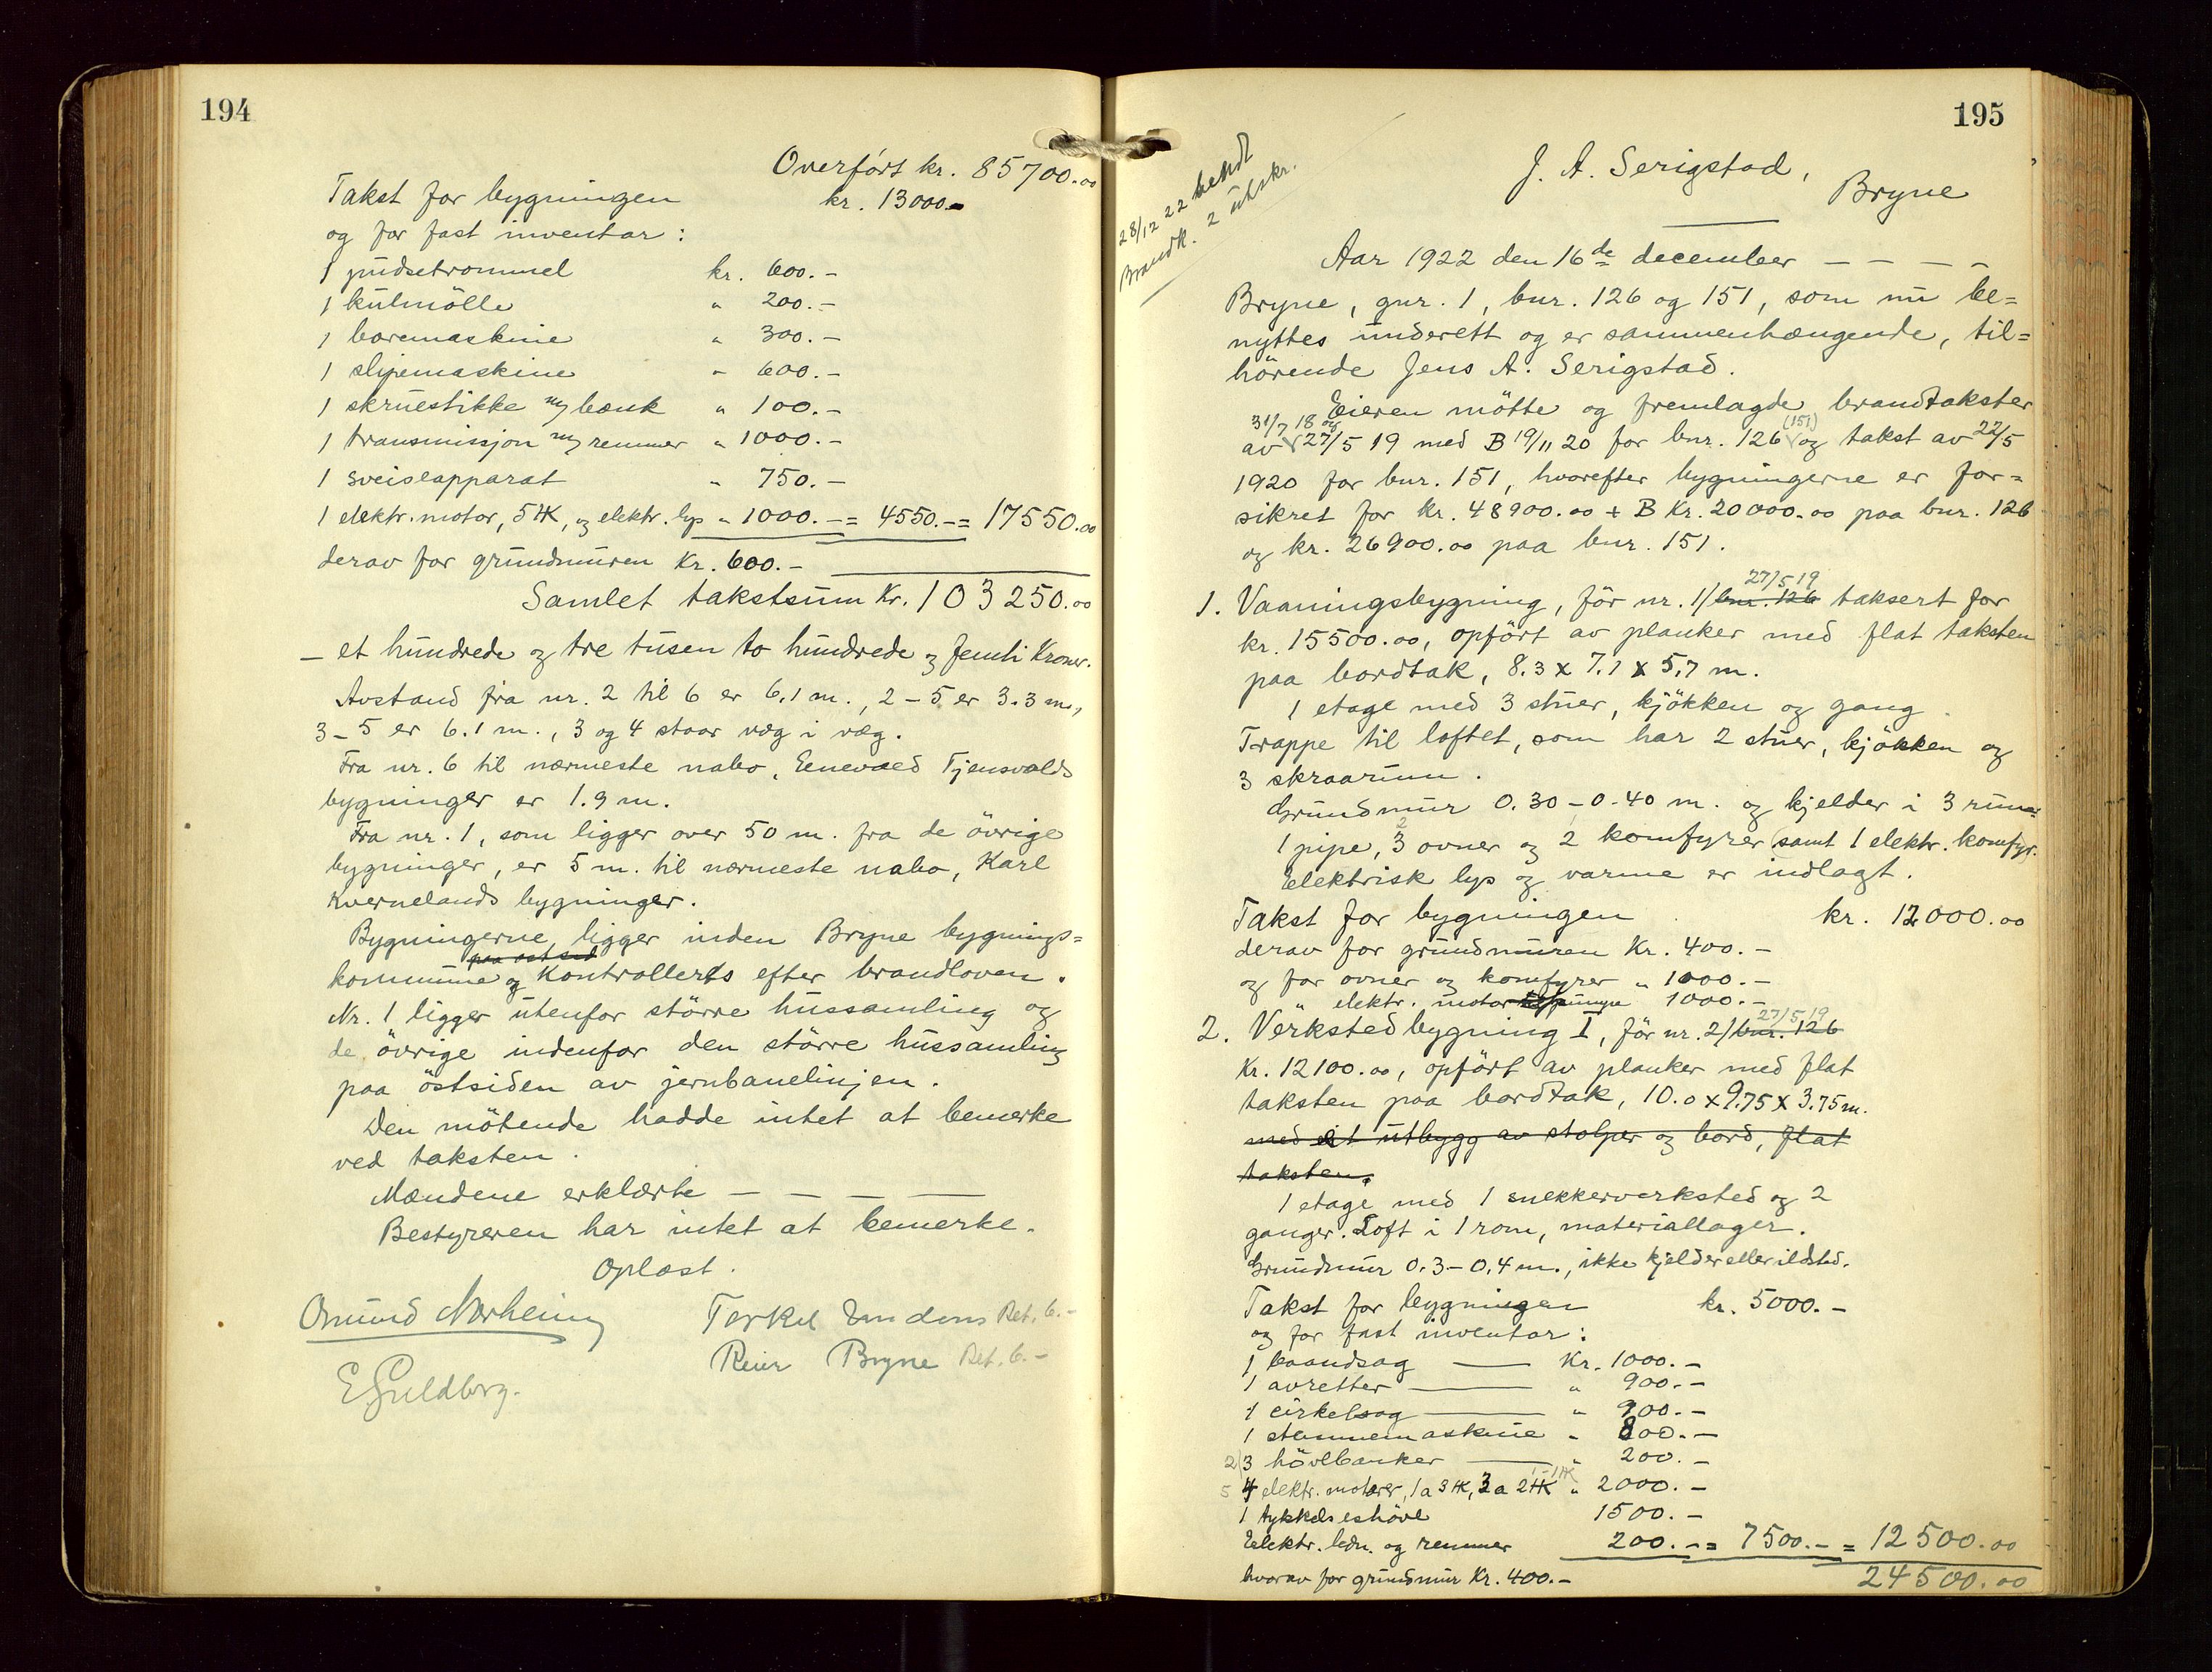 194
Overført kr. 85700.00
Takst for bygningen kr. 13000.-
og for fast inventar:
1 pudsetrommel kr. 600.-
1 kulmölle " 200.-
1 boremaskine " 300.-
1 slipemaskine " 600.-
1 skruestikke m/ bænk " 100.-
1 transmissjon m/ remmer " 1000.-
1 sveiseapparat " 750.-
1 elektr. motor, 5 HK, og elektr. lys " 1000.- = 4550.- = 17550.00
derav for grundmuren Kr. 600.-
Samlet takstsum Kr. 103250.00
- et hundrede og tre tusen to hundrede og femti Kroner.
Avstand fra nr. 2 til 6 er 6.1 m., 2-5 er 3.3 m,
3-5 er 6.1 m., 3 og 4 staar væg i væg.
Fra nr. 6 til nærmeste nabo, Enevald Tjensvolds
bygninger er 1.9 m.
Fra nr. 1, som ligger over 50 m. fra de övrige
bygninger, er 5 m. til nærmeste nabo, Karl
Kvernelands bygninger.
Bygningerne ligger inden Bryne bygnings=
paa östsid
kommune og Kontrollerts efter brandloven.
Nr. 1 ligger utenfor större hussamling og
de övrige indenfor den större hussamling
paa östsiden av jernbanelinjen.
Den mötende hadde intet at bemerke
ved taksten.
Mændene erklærte - - - -
Bestyreren har intet at bemerke.
Oplæst.
Omund Nærheim Terkel Undens Bet. 6.-
Reier Bryne Bet. 6.-
E. Guldbrg.
195
28/12 22 sendt
Brandk. 2 utskr.
J. A. Serigstad,
Bryne
Aar 1922 den 16de december - - - -
Bryne, gnr. 1, bnr. 126 og 151, som nu be=
nyttes underett og er sammenhængende, til=
hörende Jens A. Serigstad.
Eieren mötte og fremlagde brandtakster
31/7 18 og
av 27/5 19 med B 19/11 20 for bnr. 126 (151) og takst av 22/5
1920 for bnr. 151, hvorefter bygningerne er for=
sikret for kr. 48900.00 + B Kr. 20000.00 paa bnr. 126
og kr. 26900.00 paa bnr. 151.
27/5 19
1. Vaaningsbygning, för nr. 1/ bnr. 126 taksert for
kr. 15500.00, opfört av planker med flat taksten
paa bordtak, 8.3 x 7.1 x 5.7 m.
1 etage med 3 stuer, kjökken og gang.
Trappe til loftet, som har 2 stuer, kjökken og
3 skraarum.
Grundmur 0.30-0.40 m. og kjelder i 3 rum.
2
1 pipe, 3 ovner og 2 komfyrer (samt 1 elektr. komfyr.
Elektrisk lys og varme er indlagt.
Takst for bygningen kr. 12000.00
derav for grundmuren Kr. 400.-
og for ovner og komfyrer " 1000.-
" elektr. motor til pumpe 1000.-
27/5 19
2. Verkstedbygning I, för nr. 2/ bnr. 126
Kr. 12100.00, opfört av planker med flat
taksten paa bordtak, 10.0 x 9.75 x 3.75 m.
med et utbygg av stolper og bord, flat
taksten.
1 etage med 1 snekkerverksted og 2
ganger. Loft i 1 rom, materiallager.
Grundmur 0.3-0.4 m., ikke kjelder eller ildsted.
Takst for bygningen kr. 5000.-
og for fast inventar:
1 baandsag Kr. 1000.-
1 avretter " 900.-
1 cirkelsag " 900.-
1 stemmemaskine " 800.-
2) 3 hövlbænker " 200.-
1-1 HK
5 4 elektr. motorer, 1 a 3 HK, 3 a 2 HK " 2000.-
1 tykkelseshövl 1500.-
Elektr. ledn. og remmer 200.- = 7500.- = 12500.00
hvorav for grundmur Kr. 400.-
24500.00